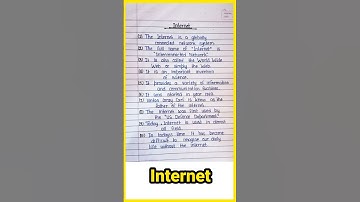 Internet
(1) The Internet is a globally
connected network system.
(2) The full name of "Internet" is
"Interconnected Network".
(3) It is also called the World Wide
Web or simply the Web.
(4) It is an important invention
of science.
(5) It provides a variety of information
and communication facilities.
(6) It was started in year 1969.
(7) Vinton Gray Cerf is known as the
father of the internet.
(8) The internet was first used by
the "US Defense Department".
(9) Today, Internet is used in almost
all field.
(10) In today's time it has become
difficult to imagine our daily
life without the internet.
Internet